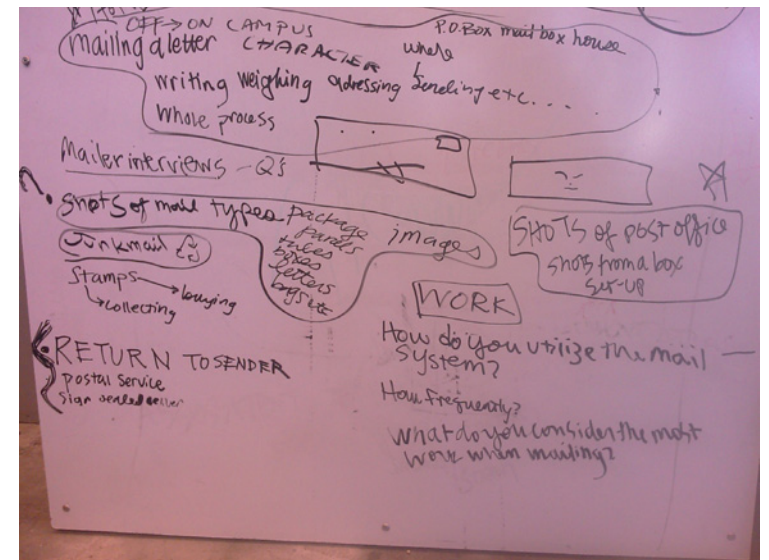 OFF → ON CAMPUS
P.O. Box mail box house
mailing a letter CHARACTER where
writing weighing adressing sending etc....
whole process
Mailer interviews - Q's
shots of mail types package
parcels
tubes
boxes
letters
bags etc
images
Junkmail
Stamps → buying
collecting
SHOTS of post office
shots from a box
set-up
WORK
RETURN TO SENDER
postal service
sign sealed
How do you utilize the mail
system?
How frequently?
What do you consider the most
work when mailing?